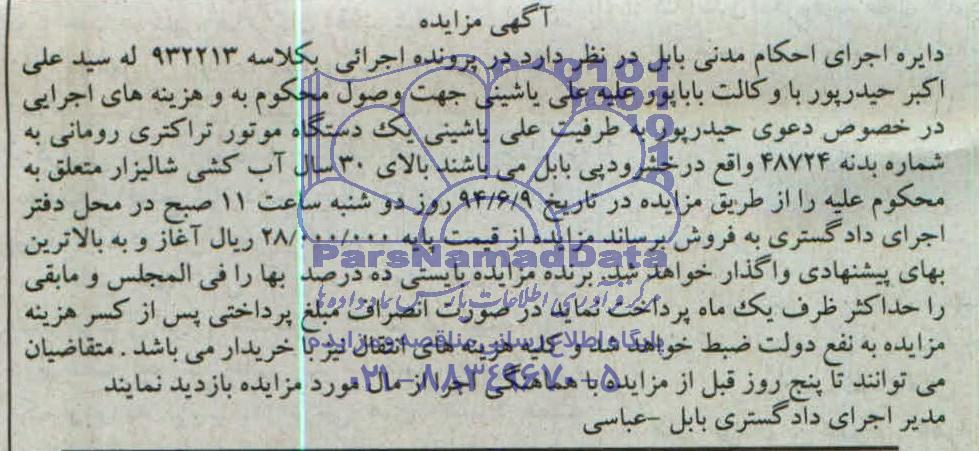 آگهی مزایده
دایره اجرای احکام مدنی بابل در نظر دارد در پرونده اجرائی بکلاسه ۹۳۲۲۱۳ له سید علی
اکبر حیدرپور با وکالت باباپور علیه علی یاشینی جهت وصول محکوم به و هزینه های اجرایی
در خصوص دعوی حیدرپور به طرفیت علی یاشینی یک دستگاه موتور تراکتری رومانی به
شماره بدنه ۴۸۷۲۴ واقع درخشرودپی بابل می باشند بالای ۳۰ سال آب کشی شالیزار متعلق به
محکوم علیه را از طریق مزایده در تاریخ ۹۴/۶/۹ روز دو شنبه ساعت ۱۱ صبح در محل دفتر
اجرای دادگستری به فروش برساند مزایده از قیمت پایه ۲۸/۰۰۰/۰۰۰ ریال آغاز و به بالاترین
بهای پیشنهادی واگذار خواهد شد. برنده مزایده بایستی ده درصد بها را فی المجلس و مابقی
را حداکثر ظرف یک ماه پرداخت نماید در صورت انصراف مبلغ پرداختی پس از کسر هزینه
مزایده به نفع دولت ضبط خواهد شد و کلیه هزینه های انتقال نیز با خریدار می باشد . متقاضیان
می توانند تا پنج روز قبل از مزایده با هماهنگی اجرا از مال مورد مزایده بازدید نمایند
مدیر اجرای دادگستری بابل -عباسی
ParsNamadData
گردآوری اطلاعات پارس نماد داده ها
پایگاه اطلاع رسانی مناقصه و مزایده
۰۲۱-۸۸۳۴۹۶۷۰-۵